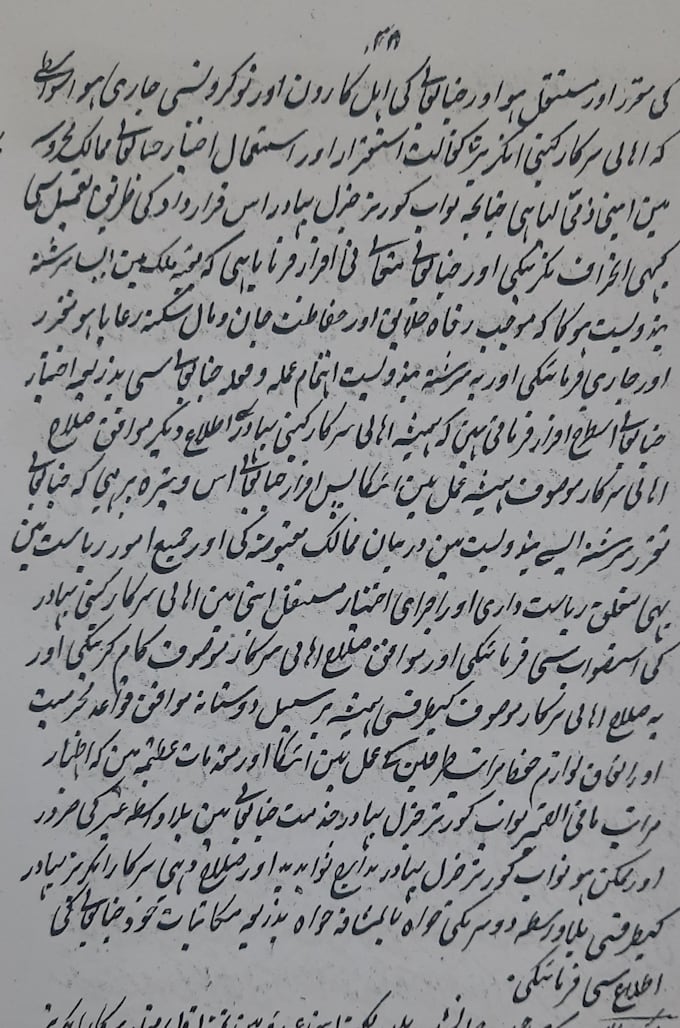 ٣٨
کی مقرر اور مستقل ہو اور جنابعالی کی اہل کارون اور نوکرونسی جاری ہو اسواسطی
کہ اہالی سرکار کمپنی انگریز نی کفالت استمرار اور استعمال اختیار جنابعالی ممالک محروسہ
مین اپنی ذمی لیا ہی چنانچہ نواب گورنر جنرل بہادر اس قرارداد کی طریق تعمیل سی
کبھی انحراف نکرینگی اور جنابعالی متعالی نی اقرار فرمایا ہی کہ بقیہ ملک مین ایسا سررشتہ
بندوبست ہوگا کہ موجب رفاہ خلایق اور حفاظت جان و مال سکنہ رعایا ہو مقرر
اور جاری فرمائنگی اور یہ سررشتہ بندوبست اہتمام عملہ و فعلہ جنابعالی سی بذریعہ اختیار
جنابعالی اسطرح اقرار فرماتی ہین کہ ہمیشہ اہالی سرکار کمپنی بہادر کو اطلاع دیکر موافق صلاح
اہالی سرکار موصوف ہمیشہ عمل مین آئیگا پس اقرار جنابعالی اس وتیرہ پر ہی کہ جنابعالی
تقرر سررشتہ ایسی بندوبست مین درمیان ممالک مقبوضہ کی اور جمیع امور ریاست مین
بھی متعلق ریاست داری اور اجرای اختیار مستقل اپنی مین اہالی سرکار کمپنی بہادر
کی استصواب سی فرمائنگی اور موافق صلاح اہالی سرکار موصوف کام کرینگی اور
یہ صلاح اہالی سرکار موصوف کیطرفسی ہمیشہ بر سبیل دوستانہ موافق قواعد محرمیت
اور اتفاق لوازم حفظ مراتب طرفین کے عمل مین آئیگا اور مقدمات عظیمہ مین کہ اظہار
مراتب مافی الضمیر نواب گورنر جنرل بہادر خدمت جنابعالی مین بلاواسطہ غیر کی ضرور
اور ممکن ہو نواب گورنر جنرل بہادر اور صلاح دہی سرکار انگریز بہادر
کیطرفسی بلاواسطہ دوسریکی خواہ بالمشافہ خواہ بذریعہ مکاتبات خود جنابعالی کی
اطلاع سی فرمائنگی